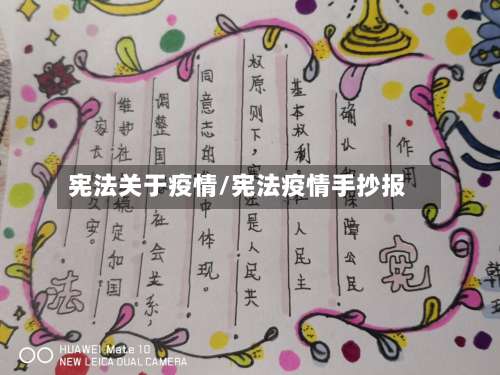 宪法关于疫情/宪法疫情手抄报
作用
宪
确认和保障公民
基本权利 人民主
权原则下,宪法是人民共
同意志的 中体现。
调整国 社会关系,
维护社 稳定和国
家长 久安。
法
韩
HUAWEI Mate 10
NEW LEICA DUAL CAMERA